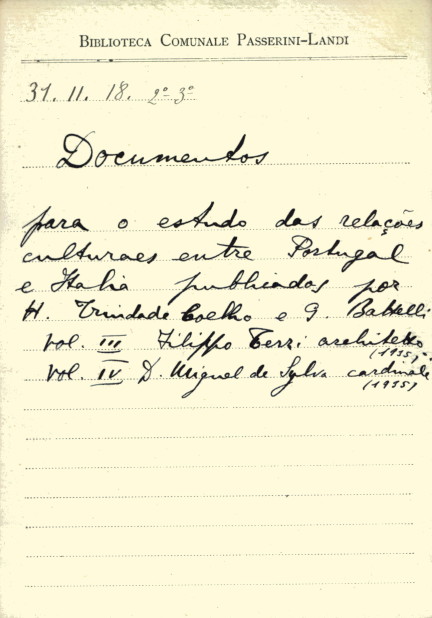 BIBLIOTECA COMUNALE PASSERINI-LANDI
31. 11. 18. 2º 3º
Documentos
para o estudo das relações
culturaes entre Portugal
e Italia publicados por
H. Trindade Coelho e G. Battelli
vol. III Filippo Terzi architetto
(1935)
vol. IV D. Miguel de Sylva cardinale
(1935)